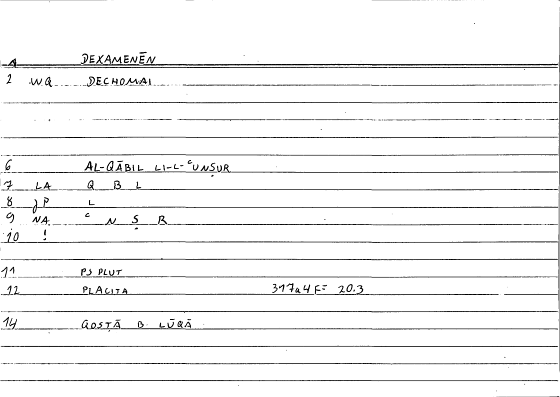 1 DEXAMENĒN
2 WQ DECHOMAI
6 AL-QĀBIL LI-L-ʿUNṢUR
7 LA Q B L
8 JP L
9 NA ʿ N Ṣ R
10 !
11 PS PLUT
12 PLACITA 317a4F= 20.3
14 QOSṬĀ B LŪQĀ